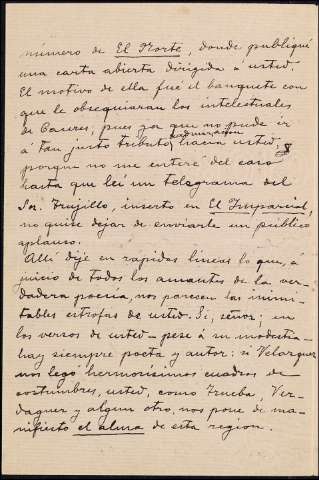 número de El Norte, donde publiqué
una carta abierta dirigida á usted.
El motivo de ella fué el banquete con
que le obsequiaran los intelectuales
de Cáceres; pues ya que no pude ir
admiracion
á tan justo tributo hacia usted,
porque no me enteré del caso
hasta que leí un telegrama del
Sr. Trujillo, inserto en El Imparcial,
no quise dejar de enviarle un público
aplauso.
Allí dije en rapidas lineas lo que, á
juicio de todos los amantes de la ver-
dadera poesía, nos parecen las inimi-
tables estrofas de usted. Si, señor; en
los versos de usted—pese á su modestia—
hay siempre poeta y autor: si Velazquez
nos legó hermosísimos cuadros de
costumbres, usted, como Trueba, Ver-
daguer y algun otro, nos pone de ma-
nifiesto el alma de esta region.